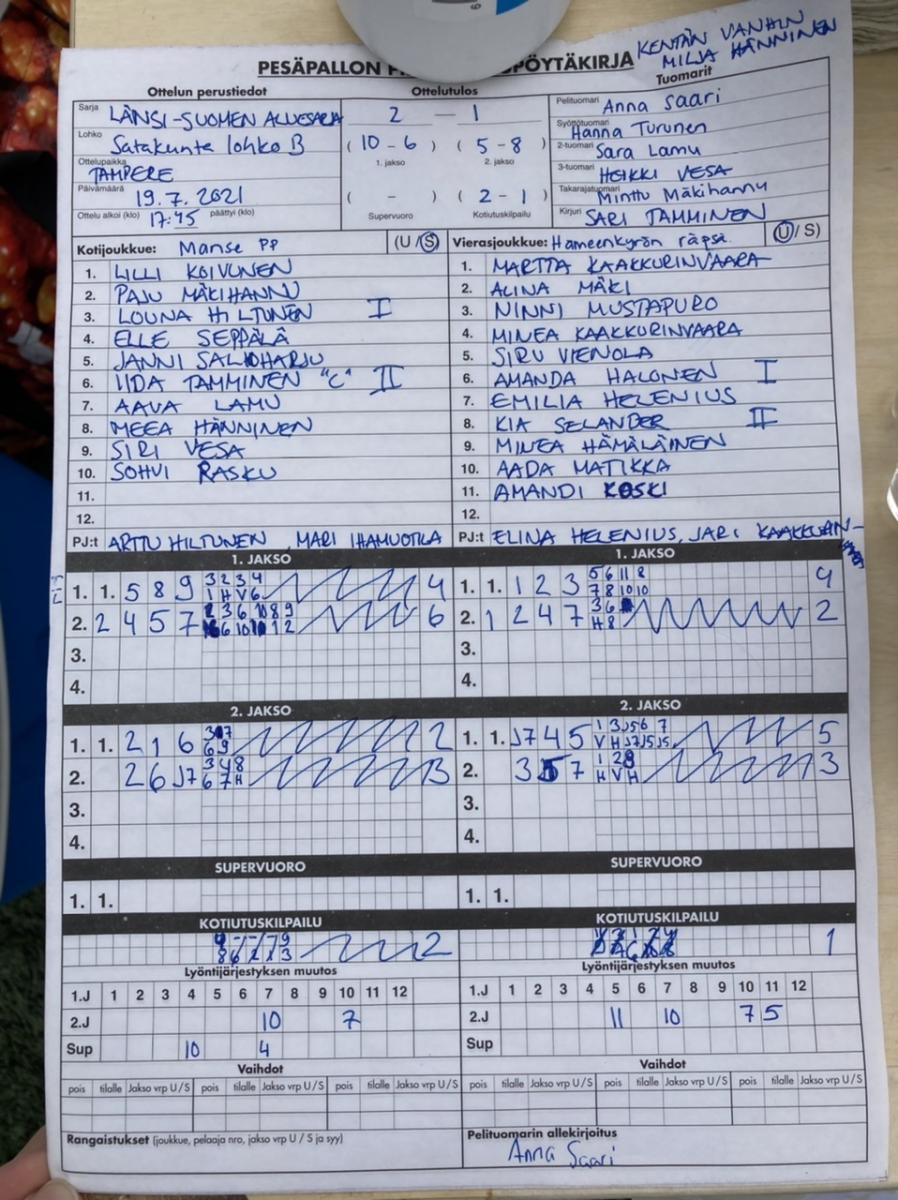 KENTÄN VANHIN
MILJA HÄNNINEN
PESÄPALLON PÖYTÄKIRJA
Tuomarit
Ottelun perustiedot
Ottelutulos
Sarja LÄNSI-SUOMEN ALUESARJA
2 — 1
Pelituomari Anna Saari
Lohko Satakunta lohko B
(10 - 6) (5 - 8)
1. jakso 2. jakso
Syöttötuomari Hanna Turunen
2-tuomari Sara Lamu
Ottelupaikka TAMPERE
3-tuomari HEIKKI VESA
Päivämäärä 19.7.2021
( - ) (2 - 1)
Takarajatuomari Minttu Mäkihannu
Ottelu alkoi (klo) 17:45 päättyi (klo)
Supervuoro Kotiutuskilpailu
Kirjuri SARI TAMMINEN
Kotijoukkue: Manse PP (U/S)
1. LILLI KOIVUNEN
2. PAJU MÄKIHANNU
3. LOUNA HILTUNEN I
4. ELLE SEPPÄLÄ
5. JANNI SALIOHARJU
6. IIDA TAMMINEN "C" II
7. AAVA LAMU
8. MEEA HÄNNINEN
9. SIRI VESA
10. SOHVI RASKU
11.
12.
PJ:t ARTTU HILTUNEN, MARI IHAMUOTILA
Vierasjoukkue: Hämeenkyrön räpsä (U/S)
1. MARTTA KAAKKURINVAARA
2. ALINA MÄKI
3. NINNI MUSTAPURO
4. MINEA KAAKKURINVAARA
5. SIRU VIENOLA
6. AMANDA HALONEN I
7. EMILIA HELENIUS
8. KIA SELANDER II
9. MINEA HÄMÄLÄINEN
10. AADA MATIKKA
11. AMANDI KOSKI
12.
PJ:t ELINA HELENIUS, JARI
1. JAKSO
1. 1. 5 8 9 3 2 3 4 4
1 H V 6
2. 2 4 5 7 6
3.
4.
1. JAKSO
1. 1. 1 2 3 5 6 11 8 4
7 8 10 10
2. 1 2 4 7 3 6 2
H 8
3.
4.
2. JAKSO
1. 1. 2 1 6 2
6 9
2. 2 6 J7 3 4 8 3
6 7 H
3.
4.
2. JAKSO
1. 1. J7 4 5 1 3 J5 6 7 5
V H J7 J5 J5
2. 3 5 7 1 2 8 3
H V H
3.
4.
SUPERVUORO
1. 1.
SUPERVUORO
1. 1.
KOTIUTUSKILPAILU
2
KOTIUTUSKILPAILU
1
Lyöntijärjestyksen muutos
1.J 1 2 3 4 5 6 7 8 9 10 11 12
2.J 10 7
Sup 10 4
Lyöntijärjestyksen muutos
1.J 1 2 3 4 5 6 7 8 9 10 11 12
2.J 11 10 7 5
Sup
Vaihdot
pois tilalle Jakso vrp U/S pois tilalle Jakso vrp U/S pois tilalle Jakso vrp U/S
Vaihdot
pois tilalle Jakso vrp U/S pois tilalle Jakso vrp U/S pois tilalle Jakso vrp U/S
Rangaistukset (joukkue, pelaaja nro, jakso vrp U / S ja syy)
Pelituomarin allekirjoitus
Anna Saari